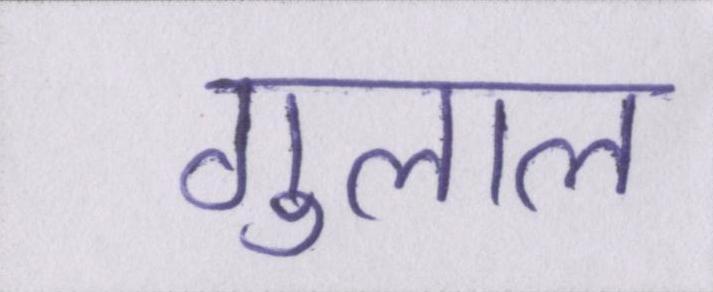 गुलाल